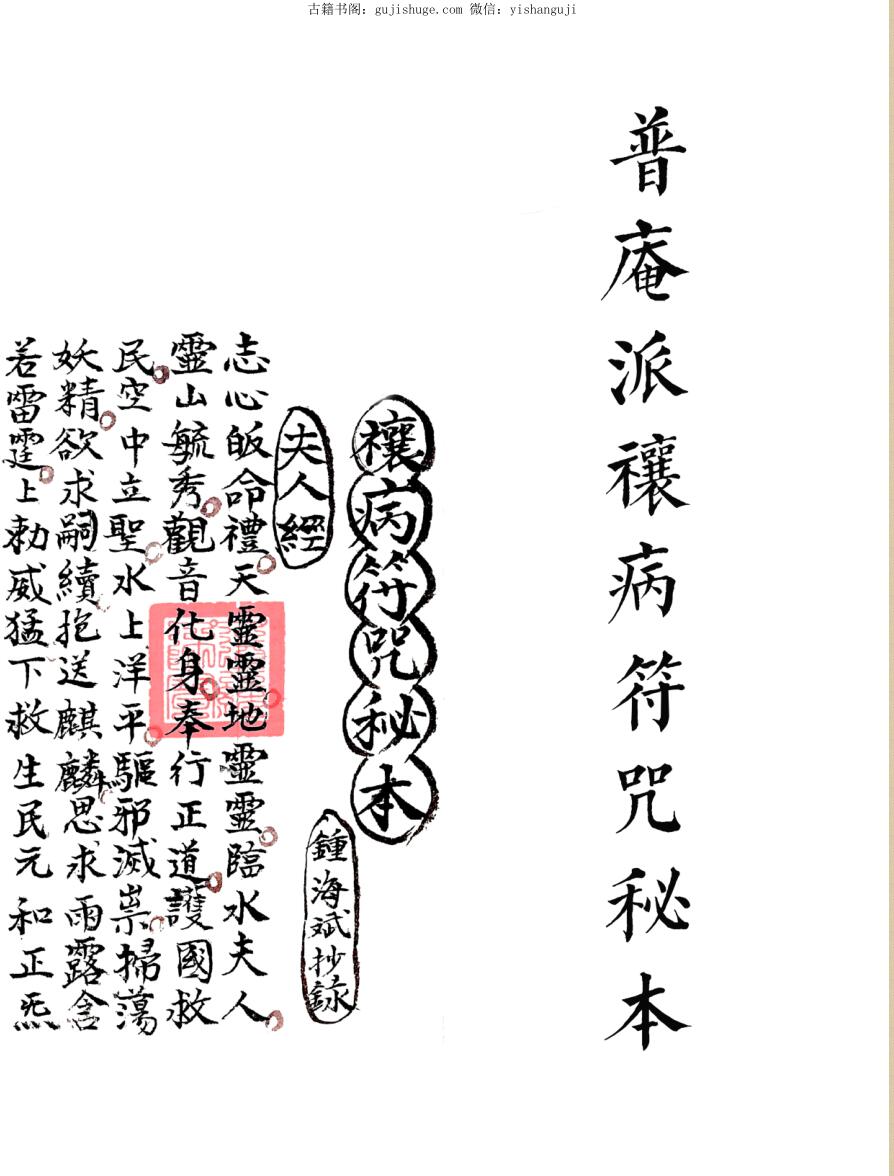 古籍书阁：gujishuge.com 微信：yishanguji
普庵派禳病符咒秘本
禳病符咒秘本
鍾海斌抄錄
夫人經
志心皈命禮天靈靈地靈靈臨水夫人
靈山毓秀觀音化身奉行正道護國救
民空中立聖水上洋平驅邪滅祟掃蕩
妖精欲求嗣續抱送麒麟思求雨露含
若雷霆上勅威猛下救生民元和正炁